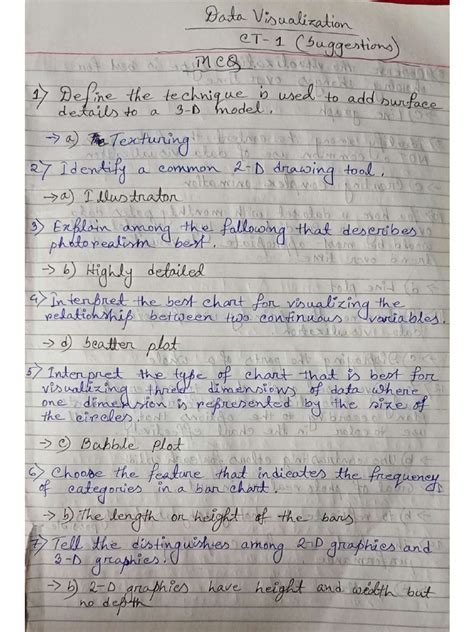 Data Visualization
CT-1 (Suggestions)
MCQ
1) Define the technique is used to add surface
details to a 3-D model.
→ a) Texturing
2) Identify a common 2-D drawing tool.
→ a) Illustrator
3) Explain among the following that describes
photorealism best.
→ b) Highly detailed
4) Interpret the best chart for visualizing the
relationship between two continuous variables.
→ d) Scatter plot
5) Interpret the type of chart that is best for
visualizing three dimensions of data where
one dimension is represented by the size of
the circles.
→ c) Bubble plot
6) Choose the feature that indicates the frequency
of categories in a bar chart.
→ b) The length or height of the bars
7) Tell the distinguishes among 2-D graphics and
3-D graphics.
→ b) 2-D graphics have height and width but
no depth